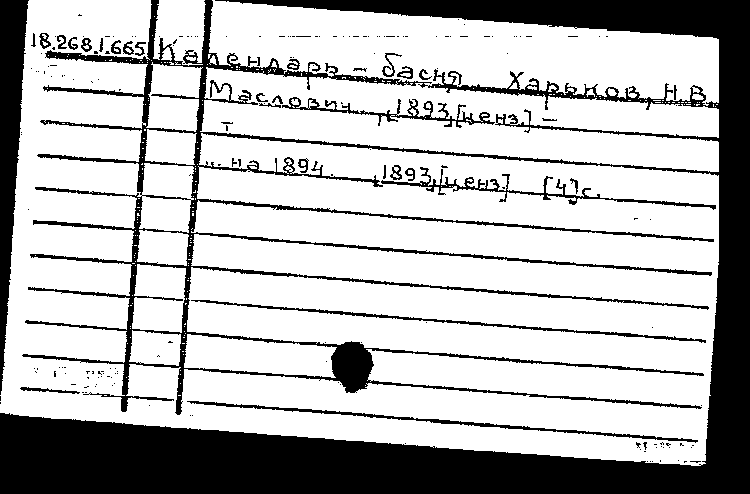 18.268.1.665 Календарь – басня. Харьков, Н.В.
Маслович, [1893, [ценз.] –
... на 1894. [1893, [ценз] [4] с.